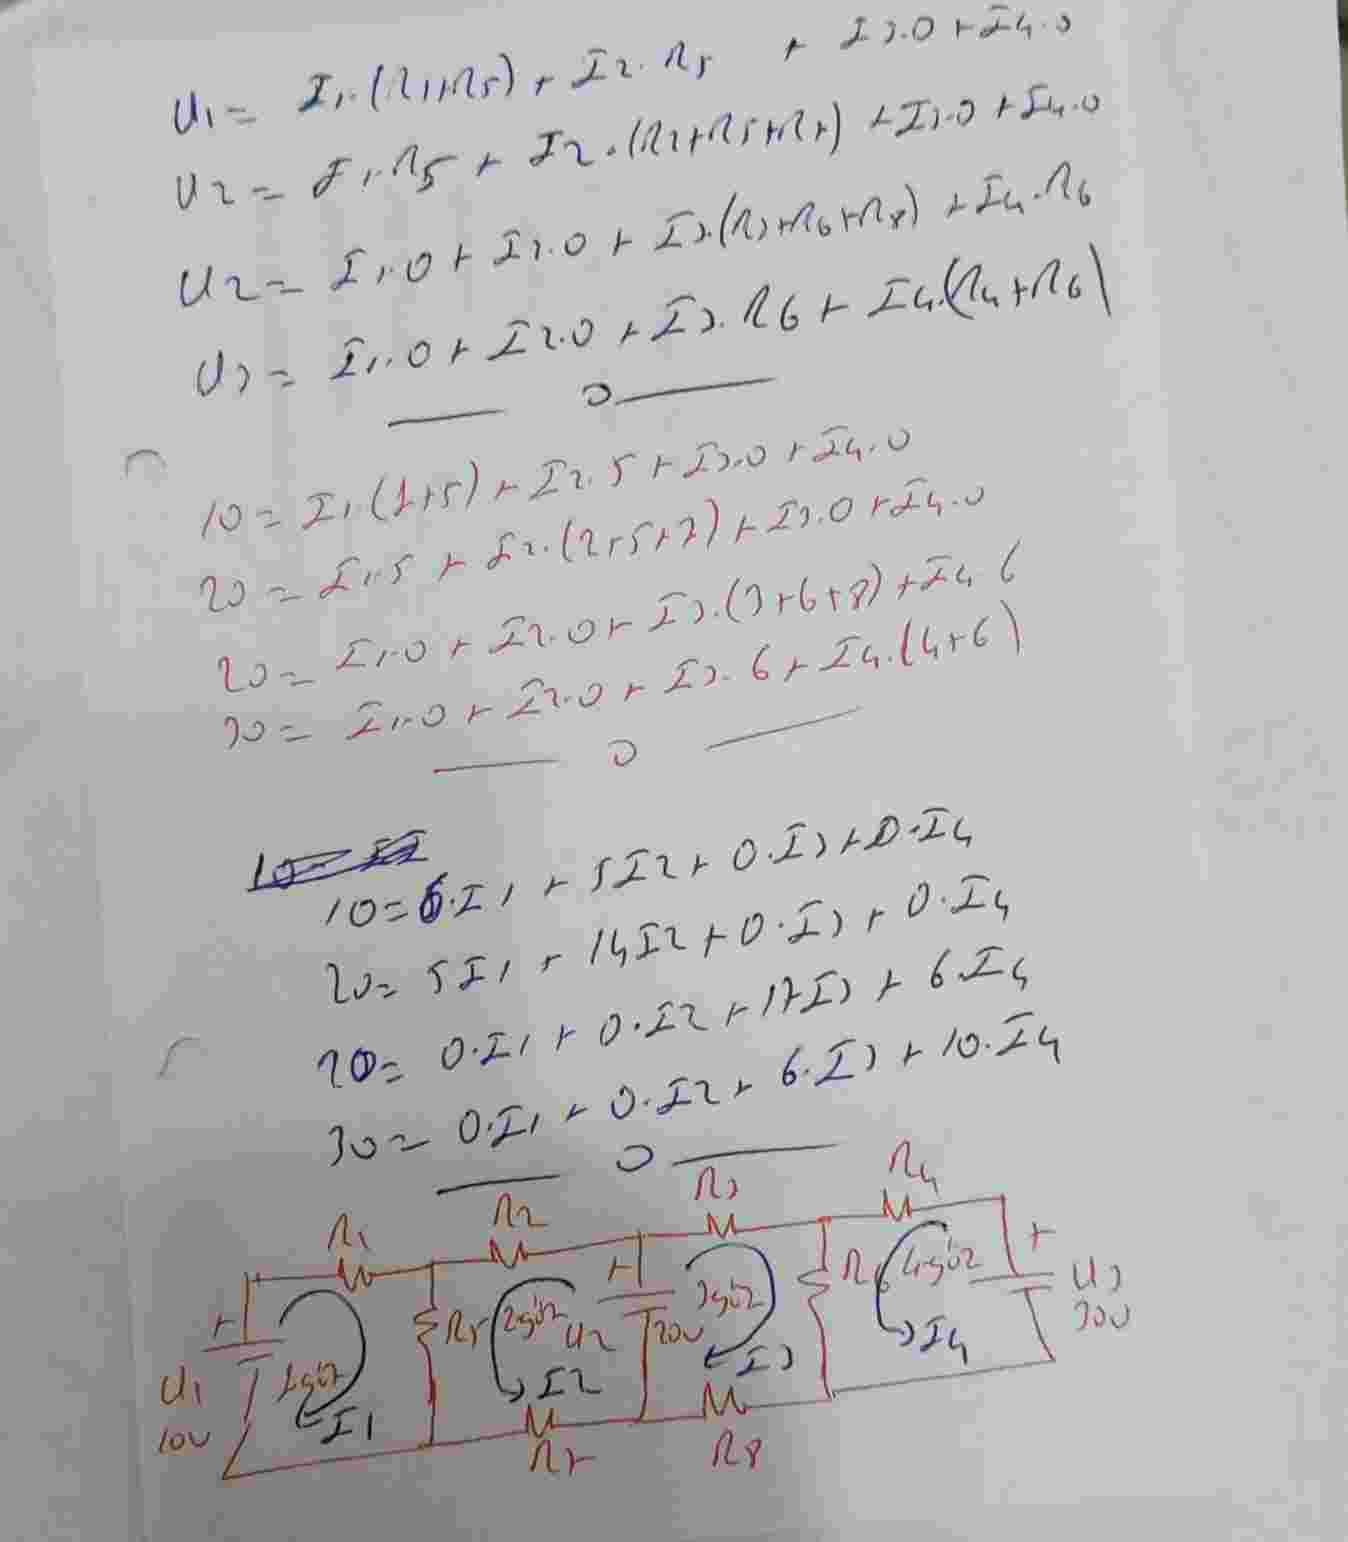 U1 = I1.(R1+R5) + I2.R5 + I3.0 + I4.0
U2 = I1.R5 + I2.(R2+R5+R7) + I3.0 + I4.0
U2 = I1.0 + I2.0 + I3.(R3+R6+R8) + I4.R6
U3 = I1.0 + I2.0 + I3.R6 + I4.(R4+R6)
10 = I1.(1+5) + I2.5 + I3.0 + I4.0
20 = I1.5 + I2.(2+5+7) + I3.0 + I4.0
20 = I1.0 + I2.0 + I3.(3+6+8) + I4 6
30 = I1.0 + I2.0 + I3.6 + I4.(4+6)
10 = 6.I1 + 5I2 + 0.I3 + 0.I4
20 = 5I1 + 14I2 + 0.I3 + 0.I4
20 = 0.I1 + 0.I2 + 17I3 + 6.I4
30 = 0.I1 + 0.I2 + 6.I3 + 10.I4
R1 R2 R3 R4
+ + +
U1 10V 1göz I1 R5 2göz I2 U2 20V 3göz I3 R6 4göz I4 U3 30V
R7 R8